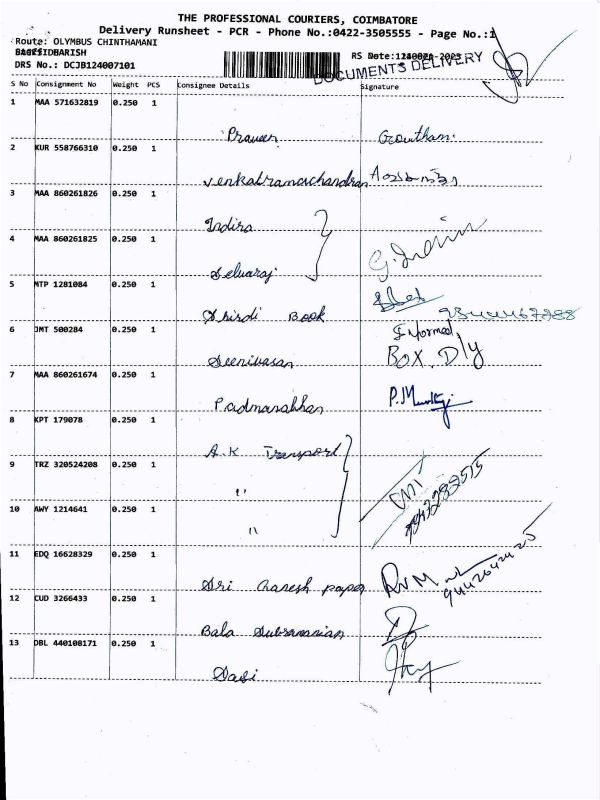 THE PROFESSIONAL COURIERS, COIMBATORE
Delivery Runsheet - PCR - Phone No.:0422-3505555 - Page No.:1
Route: OLYMBUS CHINTHAMANI
RS Date:
DRS No.: DCJB124007101
DOCUMENTS DELIVERY
S No Consignment No Weight PCS Consignee Details Signature
1 MAA 571632819 0.250 1
Praveen Gowtham.
2 KUR 558766310 0.250 1
Venkatramachandran
3 MAA 860261826 0.250 1
Indira
4 MAA 860261825 0.250 1
Selvaraj G. Indira
5 MTP 1281084 0.250 1
Shirdi Book
6 JMT 500284 0.250 1
Informed,
Seenivasan BOX. Dly
7 MAA 860261674 0.250 1
Padmanabhan
8 KPT 179078 0.250 1
A.K Transport
9 TRZ 320524208 0.250 1
"
10 AWY 1214641 0.250 1
"
11 EDQ 16628329 0.250 1
Sri Ganesh paper RVM
12 CUD 3266433 0.250 1
Bala Subramanian
13 DBL 440108171 0.250 1
Sasi